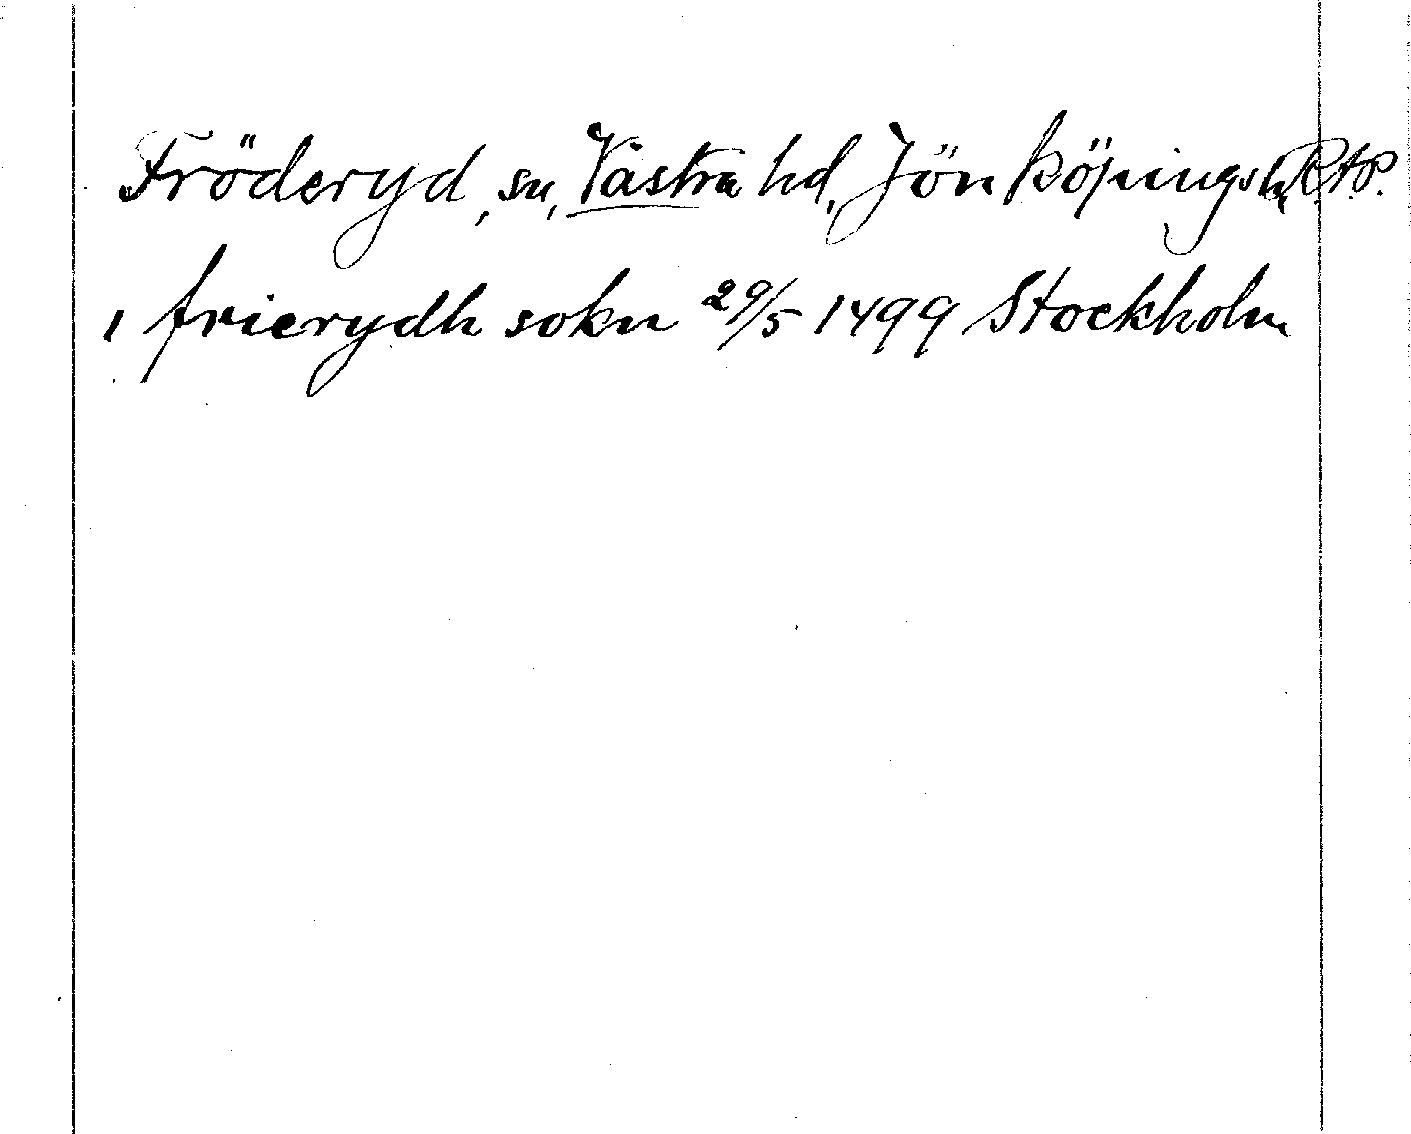 Fröderyd, sn, Västra hd, Jönköpings ln R.A.P.
i frierydh sokn 29/5 1499 Stockholm